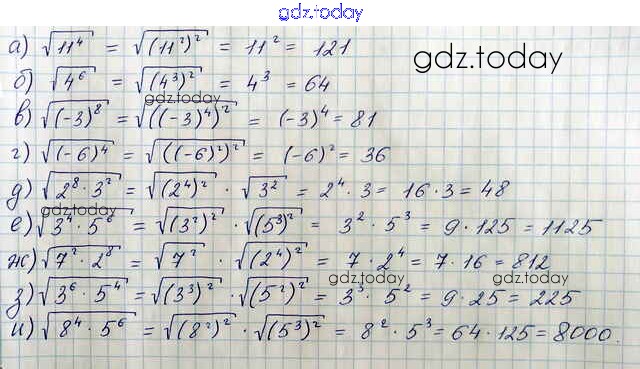 gdz.today
а) √11⁴ = √(11²)² = 11² = 121
gdz.today
б) √4⁶ = √(4³)² = 4³ = 64
gdz.today
в) √(-3)⁸ = √((-3)⁴)² = (-3)⁴ = 81
г) √(-6)⁴ = √((-6)²)² = (-6)² = 36
д) √2⁸·3² = √(2⁴)² · √3² = 2⁴·3 = 16·3 = 48
gdz.today
е) √3⁴·5⁶ = √(3²)² · √(5³)² = 3²·5³ = 9·125 = 1125
ж) √7²·2⁸ = √7² · √(2⁴)² = 7·2⁴ = 7·16 = 812
gdz.today
з) √3⁶·5⁴ = √(3³)² · √(5²)² = 3³·5² = 9·25 = 225
и) √8⁴·5⁶ = √(8²)² · √(5³)² = 8²·5³ = 64·125 = 8000.
gdz.today